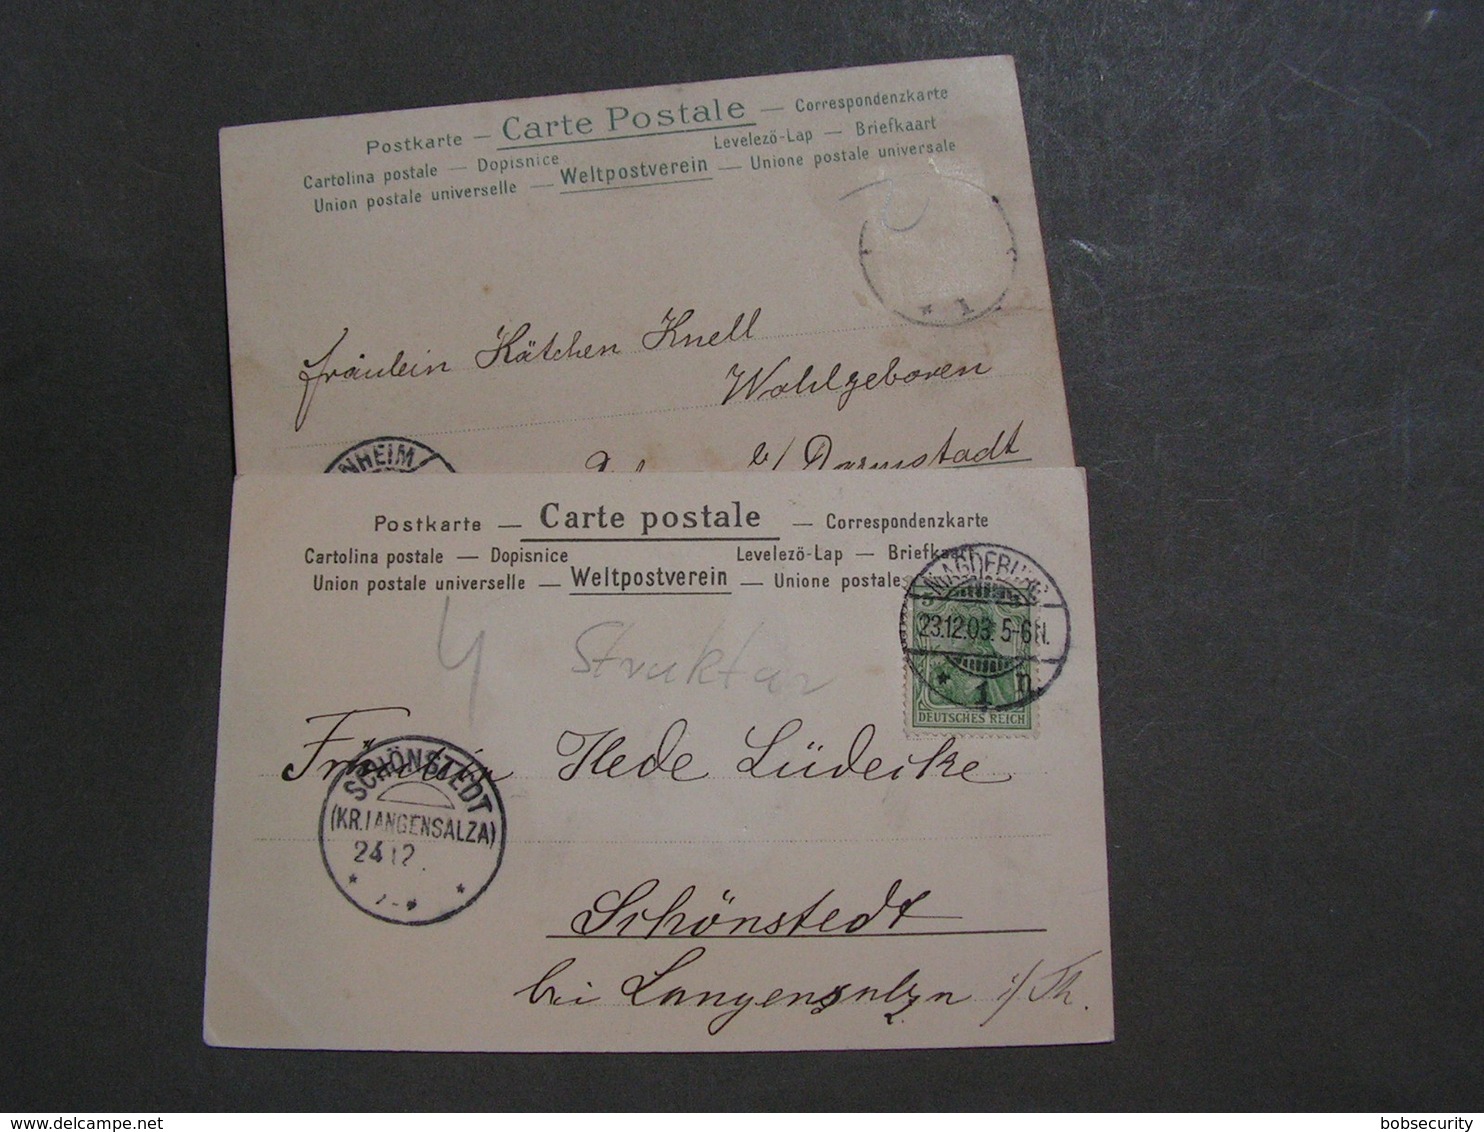 Postkarte — Carte Postale — Correspondenzkarte
Cartolina postale — Dopisnice Levelezö-Lap — Briefkaart
Union postale universelle — Weltpostverein — Unione postale universale
1
Fräulein Kätchen Knell
Wohlgeboren
b/ Darmstadt
NHEIM
Postkarte — Carte postale — Correspondenzkarte
Cartolina postale — Dopisnice Levelezö-Lap — Briefkaart
Union postale universelle — Weltpostverein — Unione postale
MAGDEBURG
23.12.03. 5-6N.
* 1 n
5 5
DEUTSCHES REICH
4 Struktur
Fräulein Hede Lüdecke
SCHÖNSTEDT
(KR. LANGENSALZA)
24 12
Schönstedt
bei Langensalza i/Th.
bobsecurity